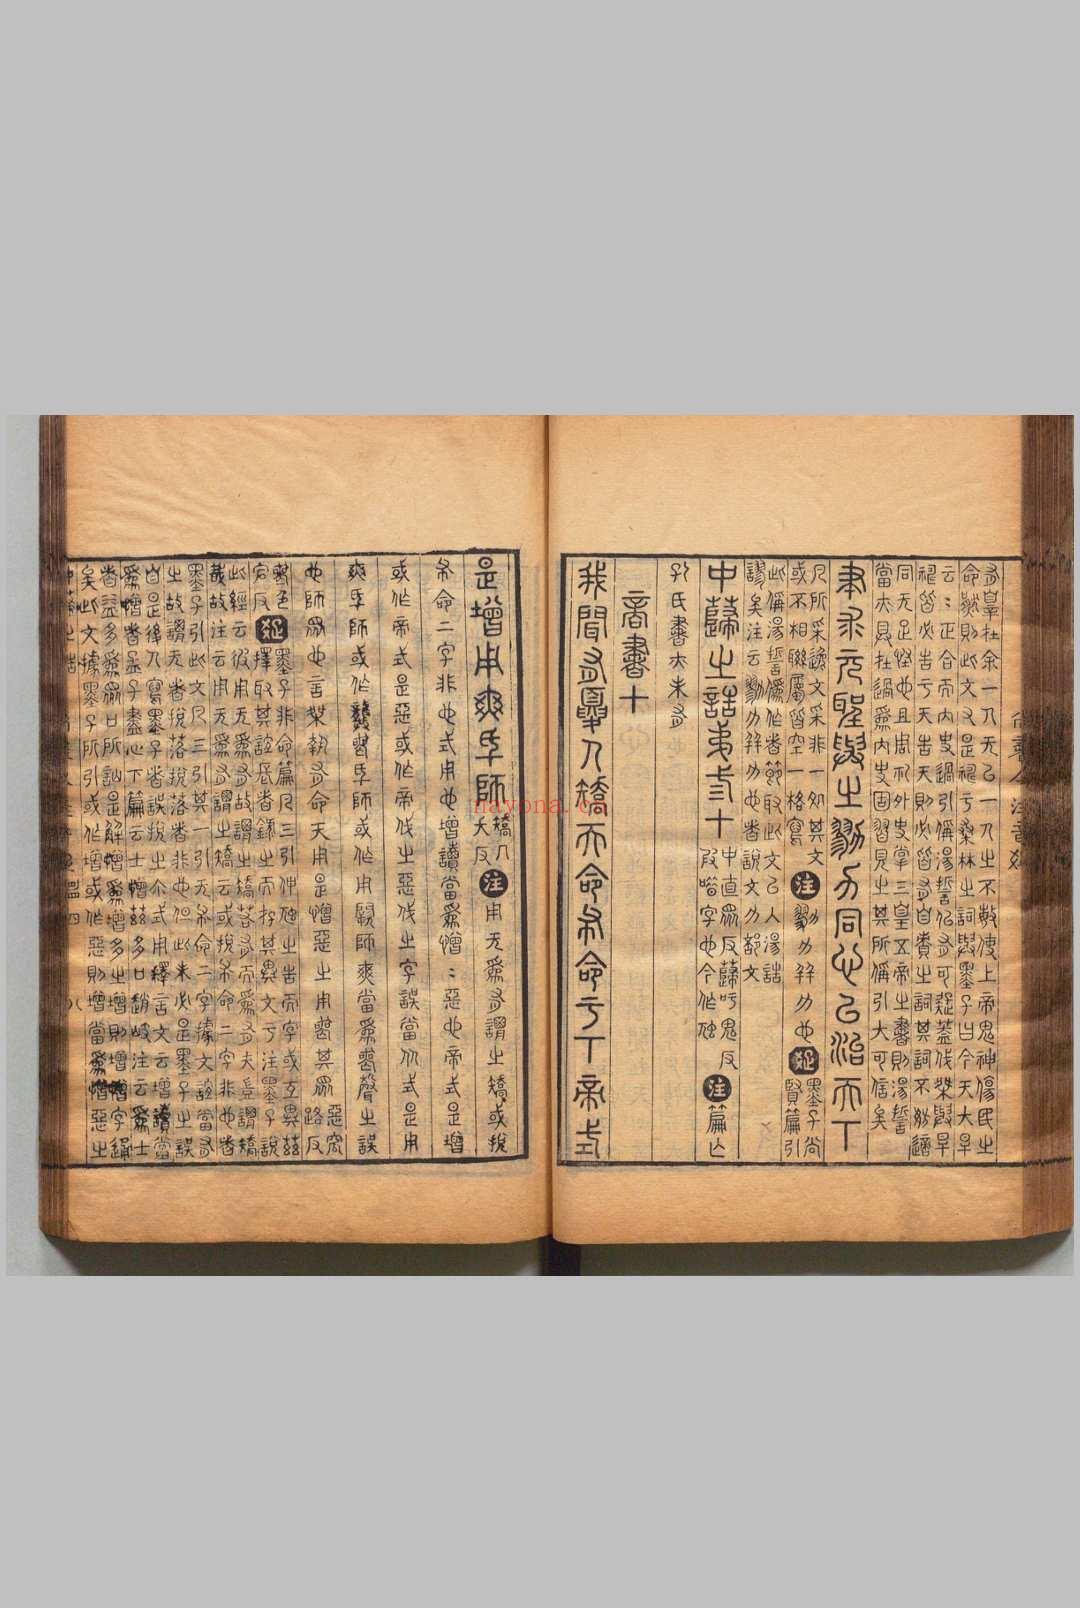 有辠在余一人无㠯一人之不敏使上帝鬼神傷民之
命然則此文又是禱于桑林之詞與墨子曰今天大旱
云云正合而内史過引偁湯誓似有可疑蓋伐桀與旱
禱皆必告于天告天則必皆有自責之詞其詞不妨適
同无足怪也且周礼外史掌三皇五帝之書則湯誓
當亦具在過爲内史固習見之其所偁引大可信矣
聿求元聖與之勠力同心㠯治天丅
凡所采逸文采非一如其文
或不相聯屬皆空一格寫
注 勠力并力也 疏 墨子尚賢篇引
此偁湯誓僞作者節取此文㠯入湯誥
謬矣注云勠力并力也者說文力部文
中蘬之誥弟三十 中直眾反蘬吁鬼反
字也今作虺 注 篇亡
孔氏書亦未有
商書十
我聞有夏人矯天命布命于丅帝式
是增用爽厥師 矯几大反 注 用无爲有謂之矯或挩
布命二字非也式用也增讀當爲憎憎惡也帝式是增
或作帝式是惡或作帝伐之惡伐之字誤當作式是用
爽厥師或作龔喪厥師或作用闕師爽當爲喪聲之誤
也師眾也言桀執有命天用是憎惡之用喪其眾 惡 路反
喪色宕反 疏 墨子非命篇凡三引仲虺之告而字或互異茲
擇取其誼長者錄之而存其異文于注墨子說
此經云彼用无爲有故謂之矯若有而爲有夫豈謂矯
哉故注云用无爲有謂之矯云或挩布命二字非也者
墨子引此文凡三引其一引无布命二字據文誼當有
之故謂无者挩落挩落者非也但此未必是墨子之誤
自是後人寫墨子者誤挩之尒式用釋言文云增讀當
爲憎者孟子盡心下篇云士憎茲多口趙岐注云爲士
者益多爲眾口所訕是解憎爲增多之增則增憎字通
矣此文據墨子所引或作增或作惡則增當爲憎惡之
nayona.cn